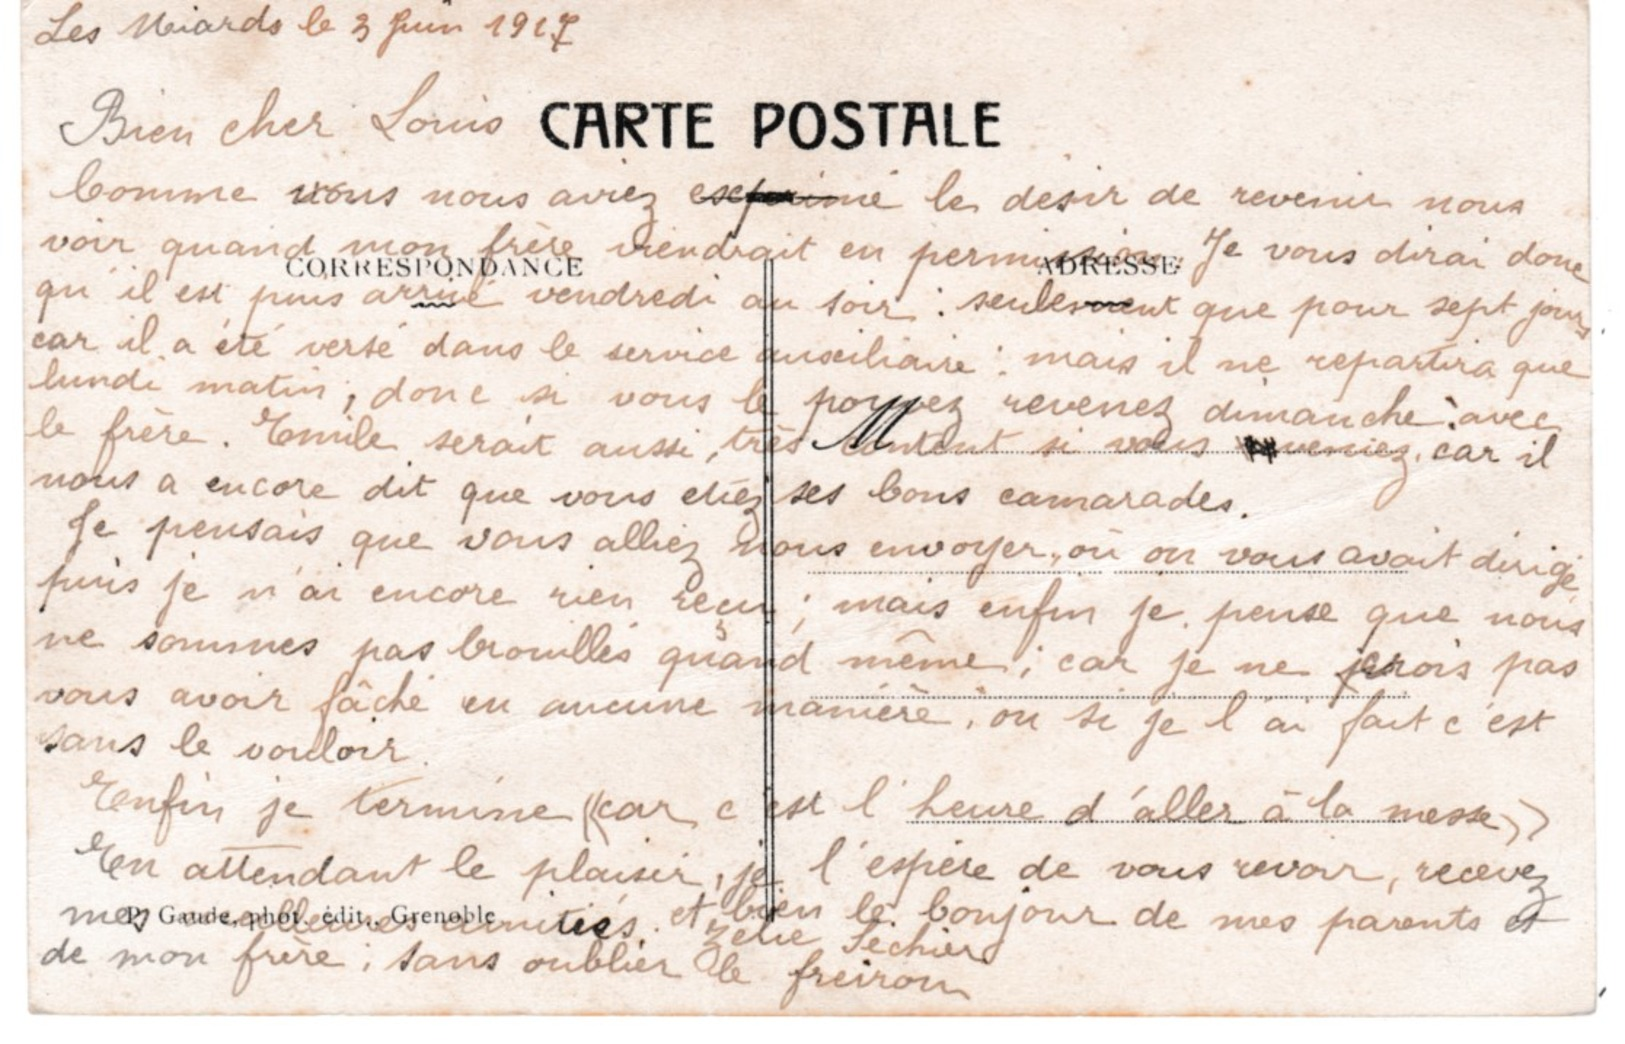 Les Miards le 3 Juin 1917
Bien cher Louis
CARTE POSTALE
Comme vous nous aviez exprimé le désir de revenir nous
voir quand mon frère viendrait en permission. Je vous dirai donc
CORRESPONDANCE
ADRESSE
qu'il est puis arrivé vendredi au soir : seulement que pour sept jours
car il a été versé dans le service auxciliaire : mais il ne repartira que
lundi matin ; donc si vous le pouvez revenez dimanche : avec
le frère. Emile serait aussi, très content si vous veniez, car il
M
nous a encore dit que vous etiez ses bons camarades.
Je pensais que vous alliez nous envoyer, où on vous avait dirigé
puis je n'ai encore rien reçu ; mais enfin je pense que nous
ne sommes pas brouillés quand même ; car je ne crois pas
vous avoir fâché en aucune manière, ou si je l'ai fait c'est
sans le vouloir.
Enfin je termine ((car c'est l'heure d'aller à la messe))
En attendant le plaisir, je l'espère de vous revoir, recevez
mes meilleures amitiés. et bien le bonjour de mes parents et
P. Gaude, phot. édit., Grenoble
de mon frère ; sans oublier le freiron
Zélie Séchier